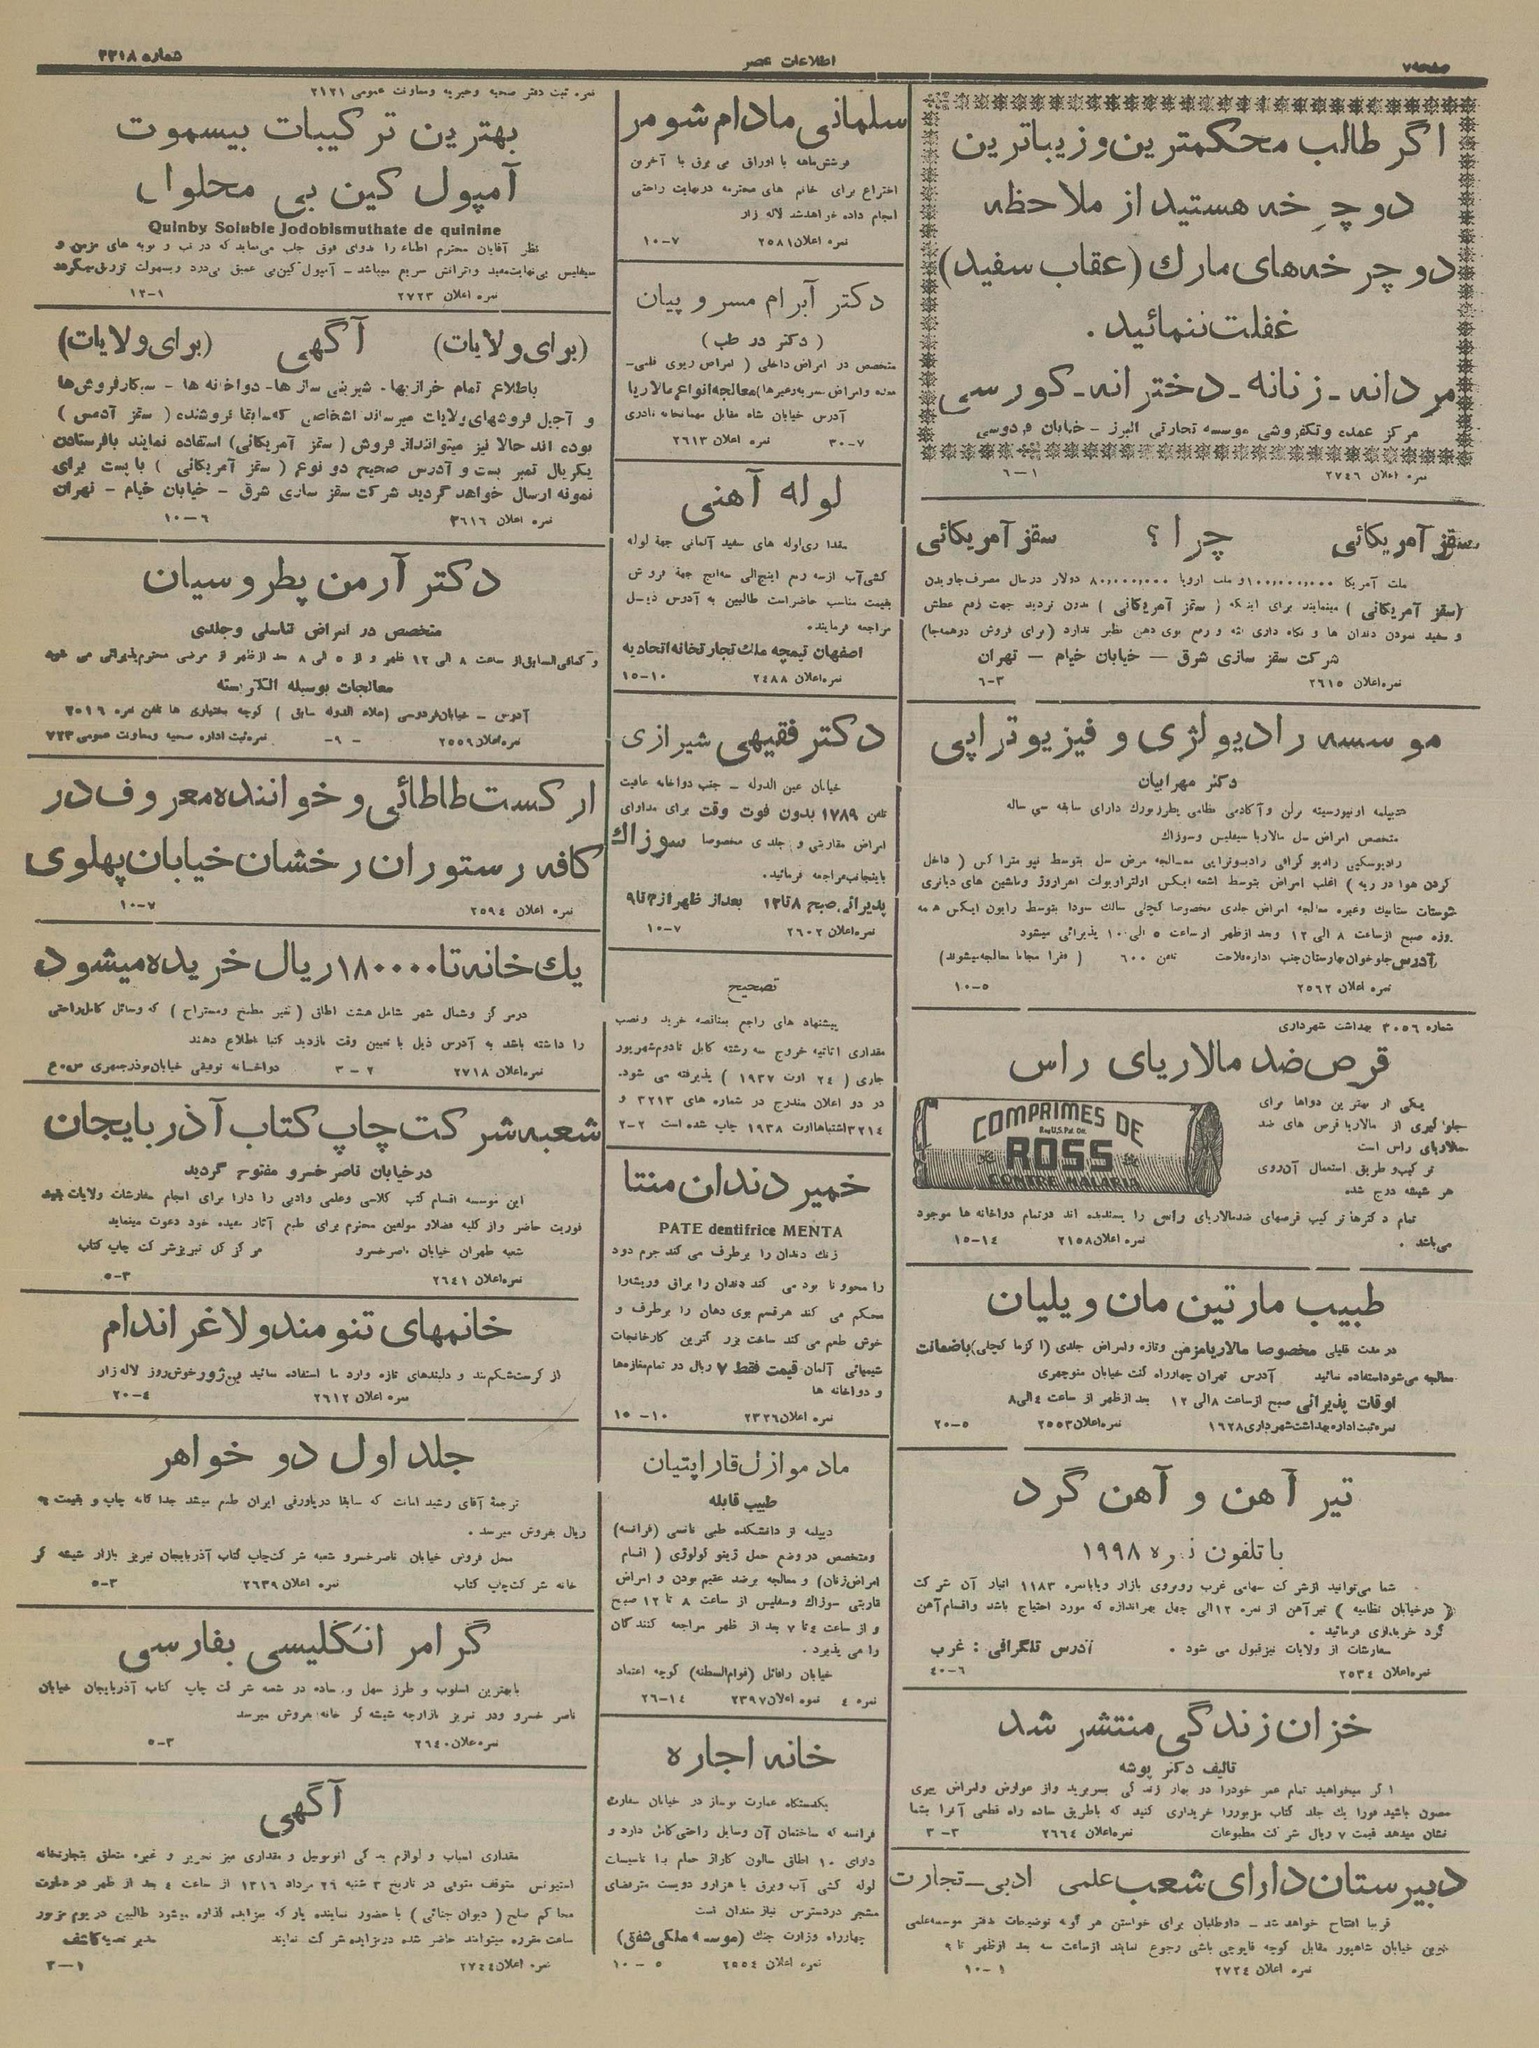 صفحه ۷
اطلاعات عصر
شماره ۳۳۱۸
اگر طالب محکمترین و زیباترین
دوچرخه هستید از ملاحظه
دوچرخه‌های مارك (عقاب سفید)
غفلت ننمائید.
مردانه ـ زنانه ـ دخترانه ـ کورسی
مرکز عمده و تکفروشی موسسه تجارتی البرز - خیابان فردوسی
نمره اعلان ۲۷۴۶ ۱-۶
سقز آمریکائی چرا؟ سقز آمریکائی
ملت آمریکا ۱۰۰,۰۰۰,۰۰۰ و ملت اروپا ۸۰,۰۰۰,۰۰۰ دولار در سال مصرف جاویدن
(سقز آمریکائی) مینمایند برای اینکه (سقز آمریکائی) بدون تردید جهت رفع عطش
و سفید نمودن دندان ها و نگاه داری لثه و رفع بوی دهن نظیر ندارد (برای فروش در همه‌جا)
شرکت سقز سازی شرق — خیابان خیام — تهران
نمره اعلان ۲۶۱۵ ۳-۶
موسسه رادیولژی و فیزیوتراپی
دکتر مهرابیان
دیپلمه اونیورسیته برلن و آکادمی نظامی پطرزبورك دارای سابقه سی ساله
متخصص امراض سل مالاریا سیفلیس و سوزاك
رادیوسکپی رادیو گرافی رادیوتراپی معالجه مرض سل بتوسط نیو متراکس (داخل
کردن هوا در ریه) اغلب امراض بتوسط اشعه ایکس اولتراویولت انفراروژ و ماشین های دیاترمی
و غیره معالجه امراض جلدی مخصوصا کچلی سالك سودا بتوسط رایون ایکس همه
روزه صبح از ساعت ۸ الی ۱۲ و بعد از ظهر از ساعت ۵ الی ۱۰ پذیرائی میشود
آدرس جلوخوان بهارستان جنب اداره فلاحت تلفن ۶۰۰ (فقرا مجانا معالجه میشوند)
نمره اعلان ۲۵۶۲ ۵-۱۰
شماره ۳۰۵۶ بهداشت شهرداری
قرص ضد مالاریای راس
COMPRIMES DE
ROSS
CONTRE MALARIA
یکی از بهترین دواها برای
جلوگیری از مالاریا قرص های ضد
مالاریای راس است
ترکیب و طریق استعمال آن روی
هر شیشه درج شده
تمام دکترها ترکیب قرصهای ضد مالاریای راس را پسندیده اند در تمام دواخانه ها موجود
می‌باشد.
نمره اعلان ۲۱۵۸ ۱۴-۱۵
طبیب مارتین مان ویلیان
در مدت قلیلی مخصوصا مالاریا مزمن و تازه و امراض جلدی (اکزما کچلی) با ضمانت
معالجه می‌شود استفاده نمائید آدرس تهران چهارراه کنت خیابان منوچهری
اوقات پذیرائی صبح از ساعت ۸ الی ۱۲ بعد از ظهر از ساعت ۴ الی ۸
نمره ثبت اداره بهداشت شهرداری ۱۶۲۸ نمره اعلان ۲۵۵۳ ۵-۲۰
تیر آهن و آهن گرد
با تلفون نمره ۱۹۹۸
شما می‌توانید از شرکت سهامی غرب روبروی بازار و یا با نمره ۱۱۸۳ انبار آن شرکت
(در خیابان نظامیه) تیر آهن از نمره ۱۲ الی چهل بهر اندازه که مورد احتیاج باشد و اقسام آهن
گرد خریداری فرمائید.
سفارشات از ولایات نیز قبول می شود. آدرس تلگرافی: غرب
نمره اعلان ۲۵۳۴ ۶-۴۰
خزان زندگی منتشر شد
تالیف دکتر پوشه
اگر میخواهید تمام عمر خود را در بهار زندگی بسر برید و از عوارض و امراض پیری
مصون باشید فورا یك جلد کتاب مزبور را خریداری کنید که با طریق ساده راه قطعی آنرا بشما
نشان میدهد قیمت ۷ ریال شرکت مطبوعات نمره اعلان ۲۶۶۴ ۳-۳
دبیرستان دارای شعب علمی ادبی - تجارت
قریبا افتتاح خواهد شد - داوطلبان برای خواستن هر گونه توضیحات بدفتر موسسه علمی
خیابان شاهپور مقابل کوچه قاپوچی باشی رجوع نمایند از ساعت سه بعد از ظهر تا ۹
نمره اعلان ۲۷۲۴ ۱-۱۰
سلمانی مادام شومر
فرشش‌ماهه با اوراق بی برق با آخرین
اختراع برای خانم های محترمه در نهایت راحتی
انجام داده خواهد شد لاله زار
نمره اعلان ۲۵۸۱ ۷-۱۰
دکتر آبرام مسروپیان
(دکتر در طب)
متخصص در امراض داخلی (امراض ریوی قلبی-
معده و امراض عصبی و غیرها) معالجه انواع مالاریا
آدرس خیابان شاه مقابل مهمانخانه نادری
نمره اعلان ۲۶۱۳ ۷-۳۰
لوله آهنی
مقداری لوله های سفید آلمانی جهة لوله
کشی آب از سه ربع اینچ الی سه اینچ جهة فروش
بقیمت مناسب حاضر است طالبین به آدرس ذیل
مراجعه فرمایند.
اصفهان تیمچه ملك تجارتخانه اتحادیه
نمره اعلان ۲۴۸۸ ۱۰-۱۵
دکتر فقیهی شیرازی
خیابان عین الدوله - جنب دواخانه عافیت
تلفن ۱۷۸۹ بدون فوت وقت برای مداوای
امراض مقاربتی و جلدی مخصوصا سوزاك
باینجانب مراجعه فرمائید.
پذیرائی صبح ۸ تا ۱۲ بعد از ظهر از ۳ تا ۹
نمره اعلان ۲۶۰۲ ۷-۱۰
تصحیح
پیشنهاد های راجع بمناقصه خرید و نصب
مقداری اثاثیه خروج سه رشته کامل تا دوم شهریور
جاری (۲۴ اوت ۱۹۳۷) پذیرفته می شود.
در دو اعلان مندرج در شماره های ۳۲۱۳ و
۳۲۱۴ اشتباها اوت ۱۹۳۸ چاپ شده است ۲-۲
خمیر دندان منتا
PATE dentifrice MENTA
زنك دندان را برطرف می کند جرم دود
را محو و نابود می کند دندان را براق و ریشه را
محکم می کند هر قسم بوی دهان را برطرف و
خوش طعم می کند ساخت بزرگترین کارخانجات
شیمیائی آلمان قیمت فقط ۷ ریال در تمام مغازه‌ها
و دواخانه ها
نمره اعلان ۲۳۲۶ ۱۰-۱۵
مادموازل قاراپتیان
طبیب قابله
دیپلمه از دانشکده طبی نانسی (فرانسه)
و متخصص در وضع حمل ژینو کولوژی (اقسام
امراض زنان) و معالجه برضد عقیم بودن و امراض
قاربتی سوزاك و سفلیس از ساعت ۸ تا ۱۲ صبح
و از ساعت ۴ تا ۷ بعد از ظهر مراجعه کنندگان
را می پذیرد.
خیابان رافائل (قوام السلطنه) کوچه اعتماد
نمره ۴ نمره اعلان ۲۳۹۷ ۱۴-۲۶
خانه اجاره
یکدستگاه عمارت نوساز در خیابان سفارت
فرانسه که ساختمان آن وسایل راحتی کامل دارد و
دارای ۱۰ اطاق سالون گاراژ حمام با تاسیسات
لوله کشی آب و برق با هزار و دویست متر فضای
مشجر در دسترس نیازمندان است
چهارراه وزارت جنك (موسسه ملکی شفق)
نمره اعلان ۲۵۵۴ ۵-۱۰
نمره ثبت دفتر صحیه و خیریه و معاونت عمومی ۲۱۲۱
بهترین ترکیبات بیسموت
آمپول کین بی محلول
Quinby Soluble Jodobismuthate de quinine
نظر آقایان محترم اطباء را بدوای فوق جلب می‌نماید که در تب و نوبه های مزمن و
سیفلیس بی‌نهایت مفید و اثراتش سریع میباشد - آمپول کین‌بی عمیق بی‌درد و بسهولت تزریق میگردد
نمره اعلان ۲۷۲۳ ۱-۱۲
(برای ولایات) آگهی (برای ولایات)
باطلاع تمام خرازیها - شیرینی سازها - دواخانه ها - سیگار فروش‌ها
و آجیل فروشهای ولایات میرساند اشخاصی که سابقا فروشنده (سقز آدمس)
بوده اند حالا نیز میتوانند از فروش (سقز آمریکائی) استفاده نمایند با فرستادن
یکریال تمبر پست و آدرس صحیح دو نوع (سقز آمریکائی) با پست برای
نمونه ارسال خواهد گردید شرکت سقز سازی شرق - خیابان خیام - تهران
نمره اعلان ۲۶۱۶ ۶-۱۰
دکتر آرمن پطروسیان
متخصص در امراض تناسلی و جلدی
و کمافی‌السابق از ساعت ۸ الی ۱۲ ظهر و از ۵ الی ۸ بعد از ظهر از مرضی محترم پذیرائی می شود
معالجات بوسیله الکتریسته
آدرس - خیابان فردوسی (علاء الدوله سابق) کوچه بختیاری ها تلفن نمره ۳۰۱۶
نمره اعلان ۲۵۵۹ -۹- نمره ثبت اداره صحیه و معاونت عمومی ۷۲۳
ارکست طاطائی و خواننده معروف در
کافه رستوران رخشان خیابان پهلوی
نمره اعلان ۲۵۹۴ ۷-۱۰
یك خانه تا ۱۸۰۰۰۰ ریال خریده میشود
در مرکز و شمال شهر شامل هشت اطاق (بغیر مطبخ و مستراح) که وسائل کامل راحتی
را داشته باشد به آدرس ذیل با تعیین وقت بازدید کتبا اطلاع دهند
نمره اعلان ۲۷۱۸ ۲-۳ دواخانه توفیقی خیابان بوذرجمهری س.ع
شعبه شرکت چاپ کتاب آذربایجان
در خیابان ناصر خسرو مفتوح گردید
این موسسه اقسام کتب کلاسی و علمی و ادبی را دارا برای انجام سفارشات ولایات بقید
فوریت حاضر و از کلیه فضلا و مولفین محترم برای طبع آثار مفیده خود دعوت مینماید
شعبه طهران خیابان ناصر خسرو مرکز کل تبریز شرکت چاپ کتاب
نمره اعلان ۲۶۴۱ ۳-۵
خانمهای تنومند و لاغر اندام
از کرست شکم بند و دلبندهای تازه وارد ما استفاده نمائید بن‌ژور خوش‌روز لاله زار
نمره اعلان ۲۶۱۲ ۴-۲۰
جلد اول دو خواهر
ترجمة آقای رشید امانت که سابقا در پاورقی ایران طبع میشد جداگانه چاپ و بقیمت
ریال بفروش میرسد.
محل فروش خیابان ناصر خسرو شعبه شرکت چاپ کتاب آذربایجان تبریز بازار شیشه گر
خانه شرکت چاپ کتاب نمره اعلان ۲۶۳۹ ۳-۵
گرامر انگلیسی بفارسی
با بهترین اسلوب و طرز سهل و ساده در شعبه شرکت چاپ کتاب آذربایجان خیابان
ناصر خسرو و در تبریز بازارچه شیشه گر خانه بفروش میرسد
نمره اعلان ۲۶۴۰ ۳-۵
آگهی
مقداری اسباب و لوازم یدکی اتومبیل و مقداری میز تحریر و غیره متعلق بتجارتخانه
استیونس متوقف متوفی در تاریخ ۳ شنبه ۲۶ مرداد ۱۳۱۶ از ساعت ۴ بعد از ظهر در عمارت
محاکم صلح (دیوان جنائی) با حضور نماینده پارکه بمزایده گذارده میشود طالبین در یوم مزبور
ساعت مقرره میتوانند حاضر شده در مزایده شرکت نمایند مدیر تصفیه کاشف
نمره اعلان ۲۷۴۴ ۱-۳